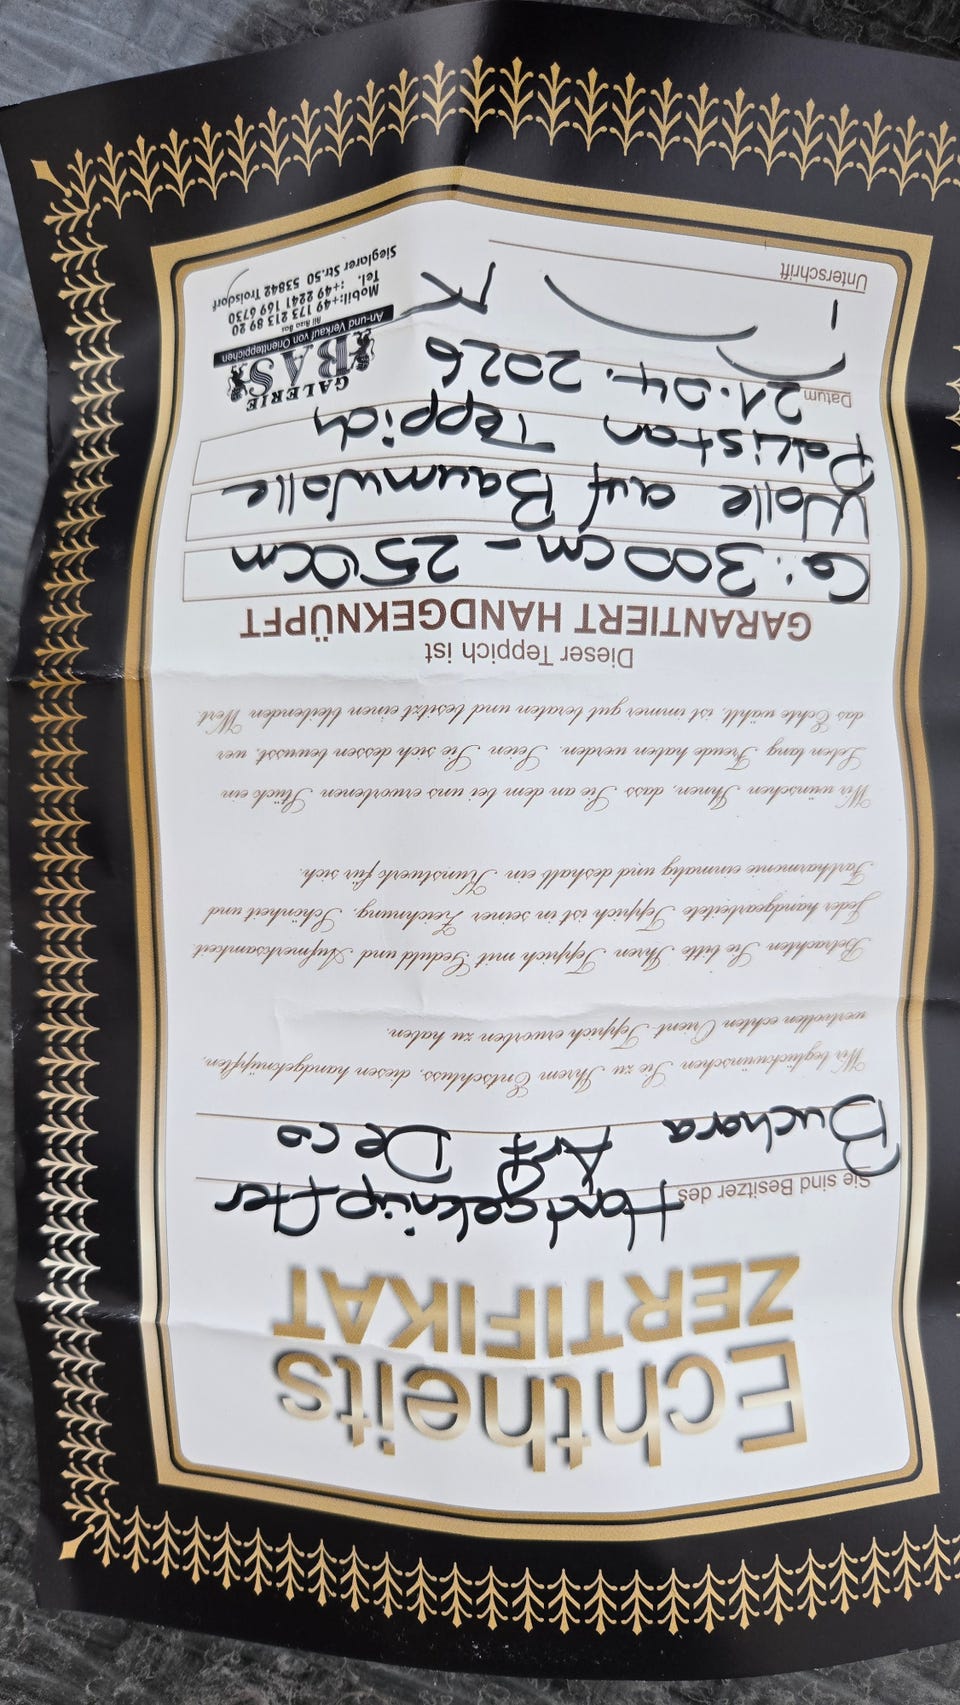 Echtheits
ZERTIFIKAT
Sie sind Besitzer des Handgeknüpfter
Buchara Art Deco
Wir beglückwünschen Sie zu Ihrem Entschluss, diesen handgeknüpften,
wertvollen echten Orient-Teppich erworben zu haben.
Betrachten Sie bitte Ihren Teppich mit Geduld und Aufmerksamkeit.
Jeder handgearbeitete Teppich ist in seiner Zeichnung, Schönheit und
Farbharmonie einmalig und deshalb ein Kunstwerk für sich.
Wir wünschen Ihnen, dass Sie an dem bei uns erworbenen Stück ein
Leben lang Freude haben werden. Seien Sie sich dessen bewusst, wer
das Echte wählt, ist immer gut beraten und besitzt einen bleibenden Wert.
Dieser Teppich ist
GARANTIERT HANDGEKNÜPFT
G: 300cm - 250cm
Wolle auf Baumwolle
Pakistan Teppich
Datum 21.04.2026
Unterschrift
GALERIE
BAS
Ali Rıza Bas
An- und Verkauf von Orientteppichen
Mobil:+49 173 213 89 20
Tel. :+49 2241 169 6730
Sieglarer Str.50 53842 Troisdorf